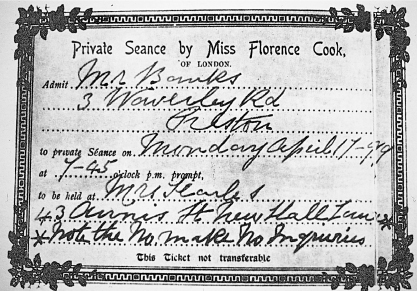 Private Seance by Miss Florence Cook,
OF LONDON.
Admit Mr Banks
3 Waverley Rd
Preston
to private Séance on Monday April 17-99
at 7-45 o'clock p.m. prompt,
to be held at Mrs Searles
43 St New Hall Lane *
* Note the No, make No Inquiries
This Ticket not transferable